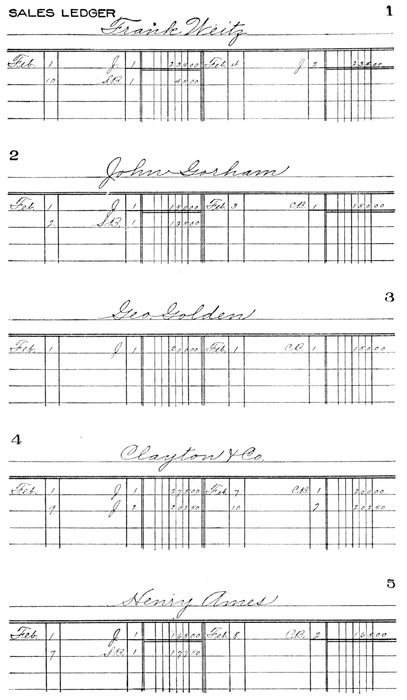 SALES LEDGER 1
Frank Weitz
Feb. 1 J. 1 234.00 Feb. 4 J 2 234.00
10 S.B. 1
2
John Gorham
Feb. 1 J 1 150.00 Feb. 3 C.B. 1 150.00
2 S.B. 1
3
Geo. Golden
Feb. 1 J 1 200.00 Feb. 1 C.B. 1 150.00
4
Clayton & Co.
Feb. 1 J 1 275.00 Feb. 7 C.B. 1 200.00
9 J 2 202.50 10 2 202.50
5
Henry Ames
Feb. 1 J 1 165.00 Feb. 8 C.B. 2 165.00
7 S.B. 1 177.50